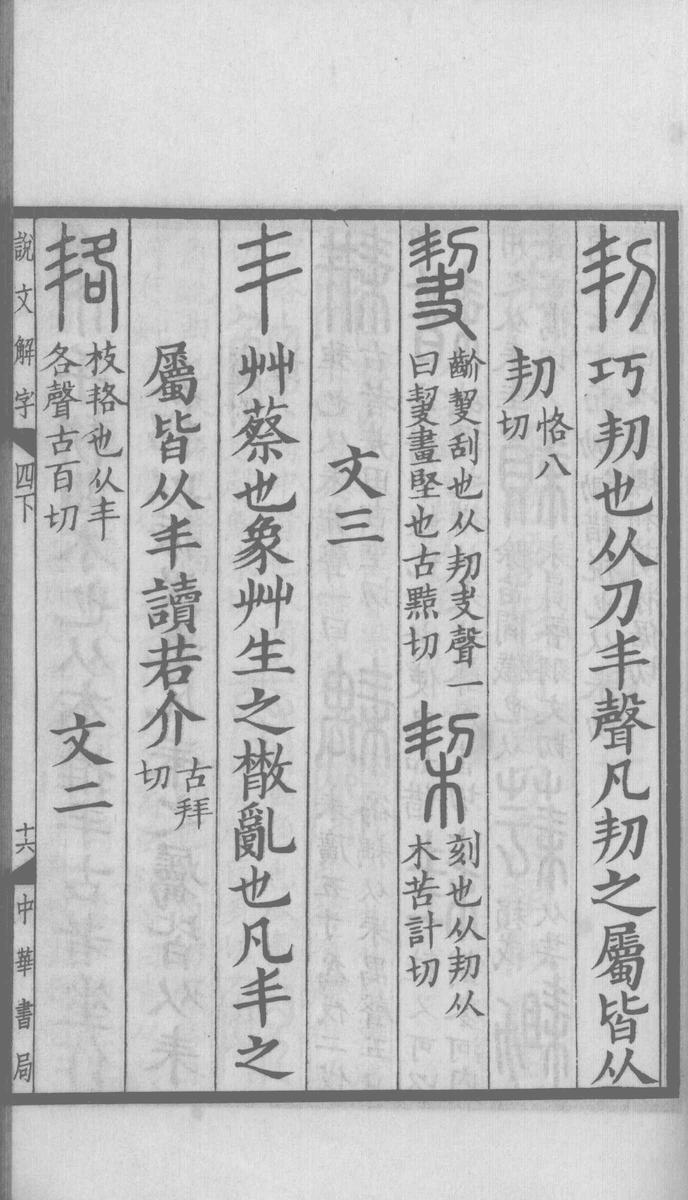 㓞巧㓞也从刀丯聲凡㓞之屬皆从
㓞恪八切
𪟄齘𪟄刮也从㓞夬聲一曰𪟄畫堅也古黠切 栔刻也从㓞从木苦計切
文三
丯艸蔡也象艸生之散亂也凡丯之
屬皆从丯讀若介古拜切
𦓷枝𦓷也从丯各聲古百切 文二
說文解字 四下 十六 中華書局